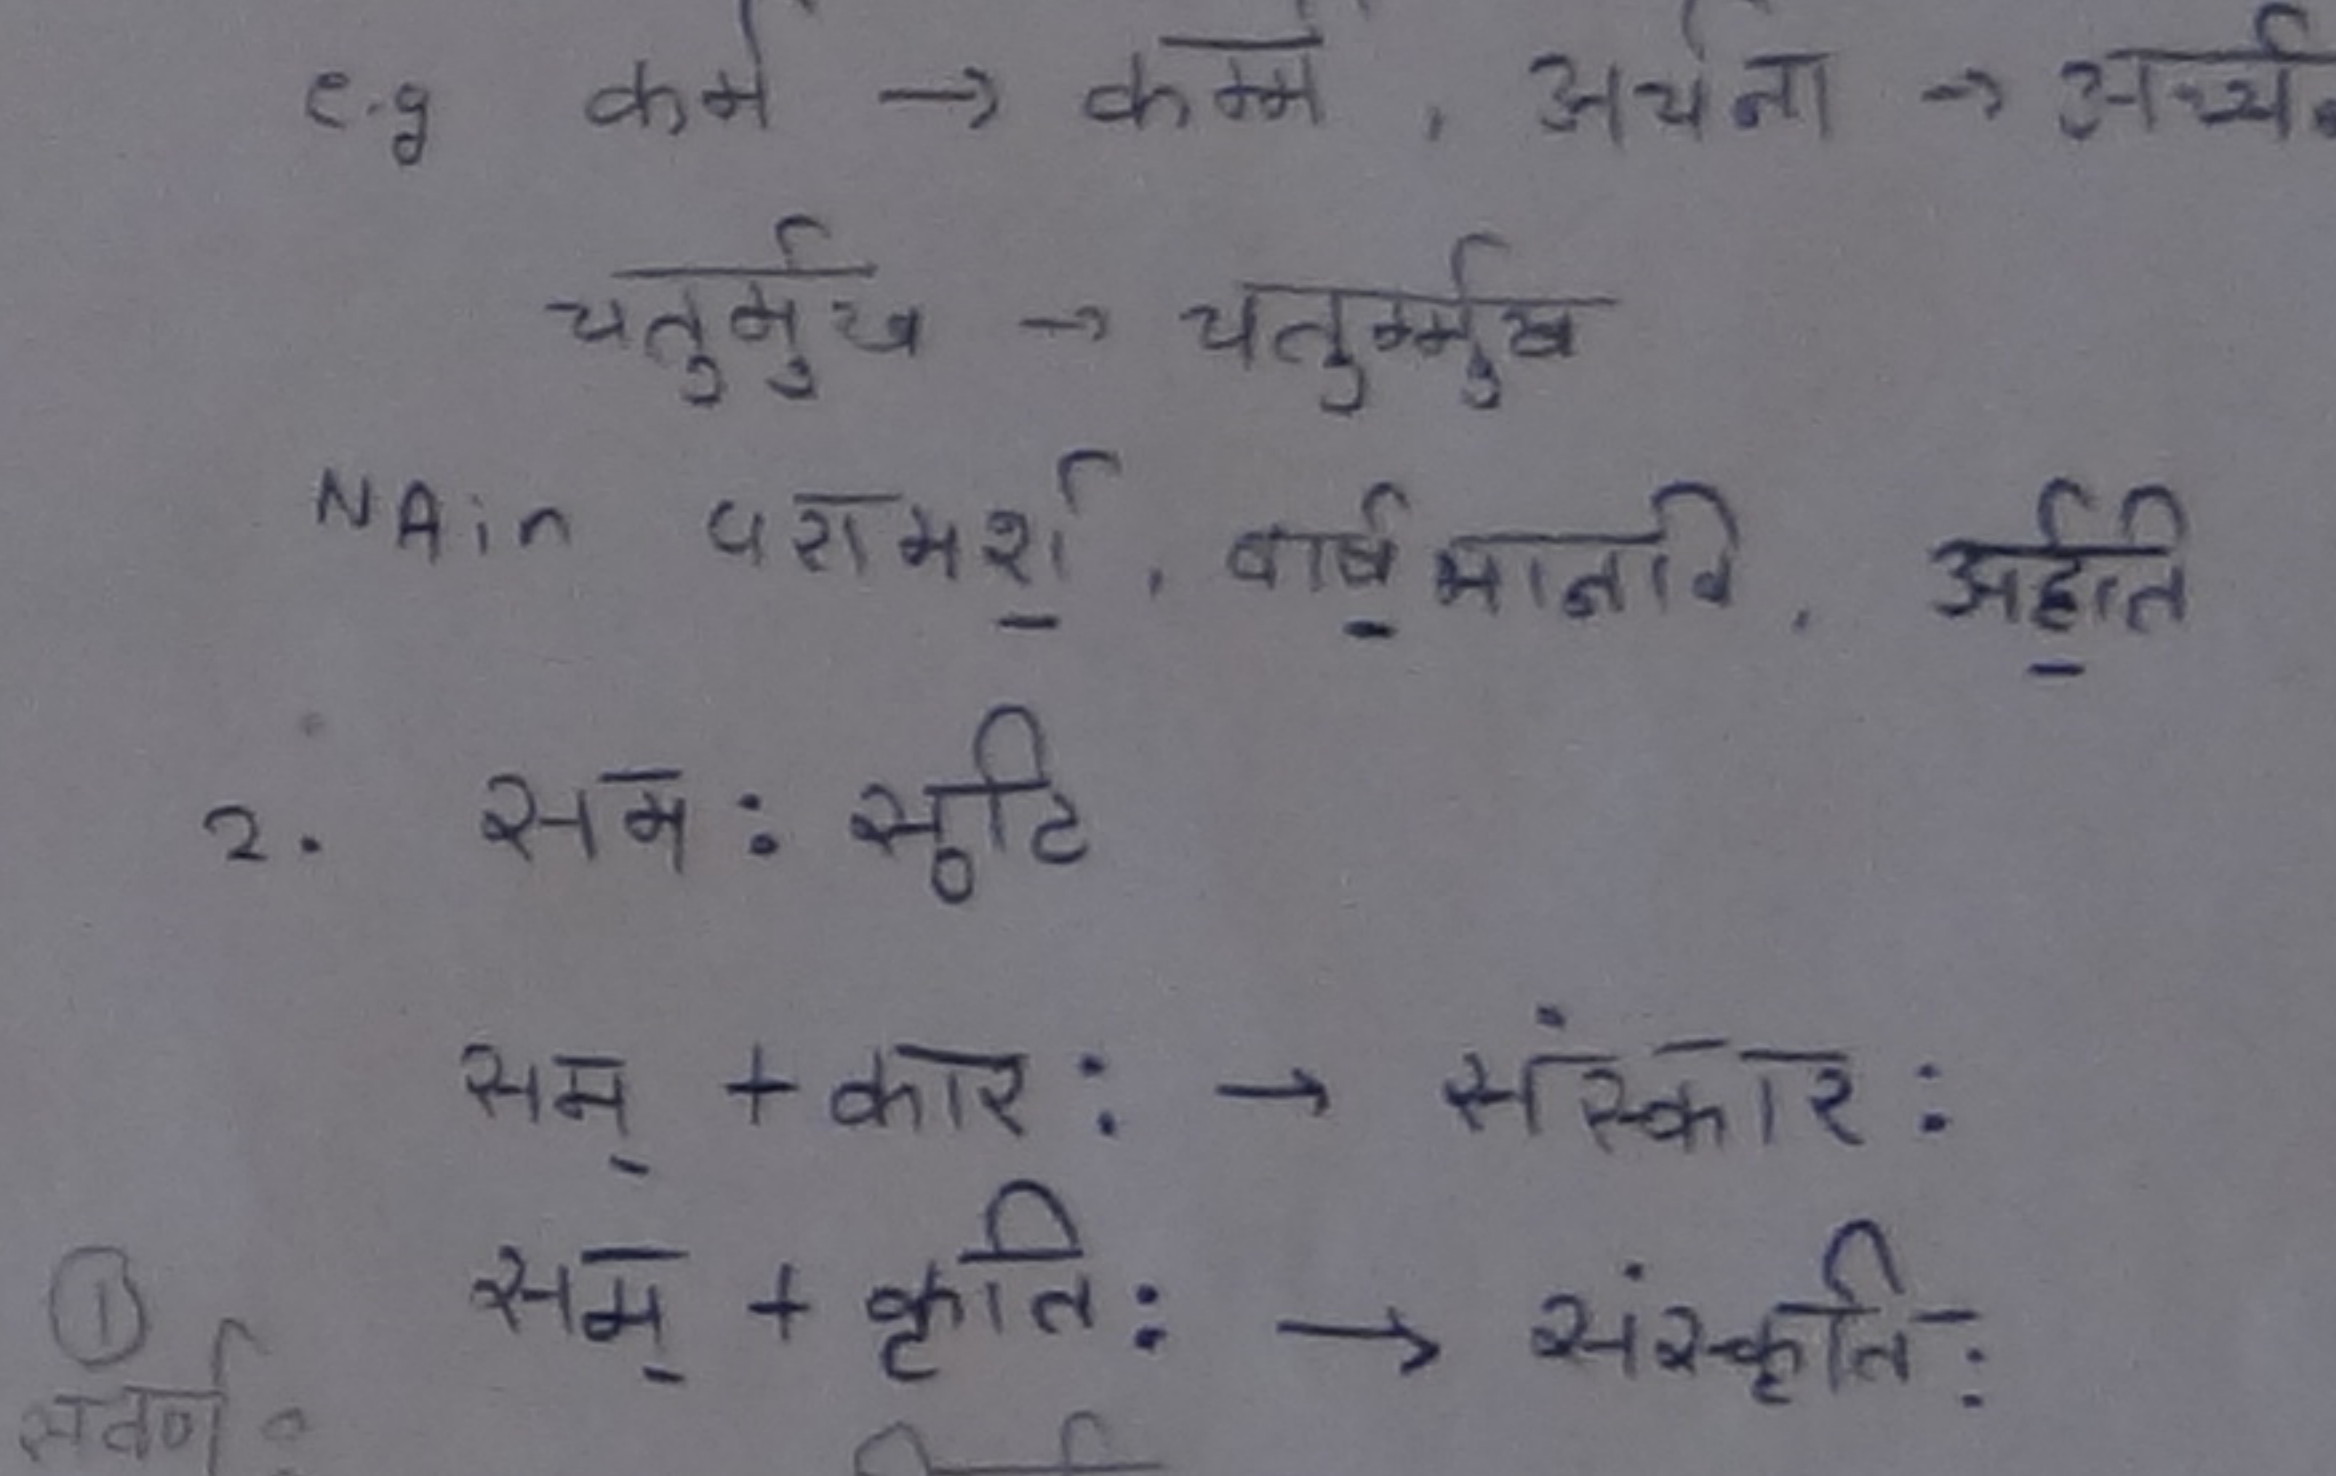 e.g कर्म → कर्म्म, अर्चना → अर्च्च
चतुर्मुख → चतुर्म्मुख
NA in परामर्श, वार्षमानवि, अर्हति
2. समः सुटि
सम् + कारः → संस्कारः
सम् + कृतिः → संस्कृतिः
①
सवर्ण: